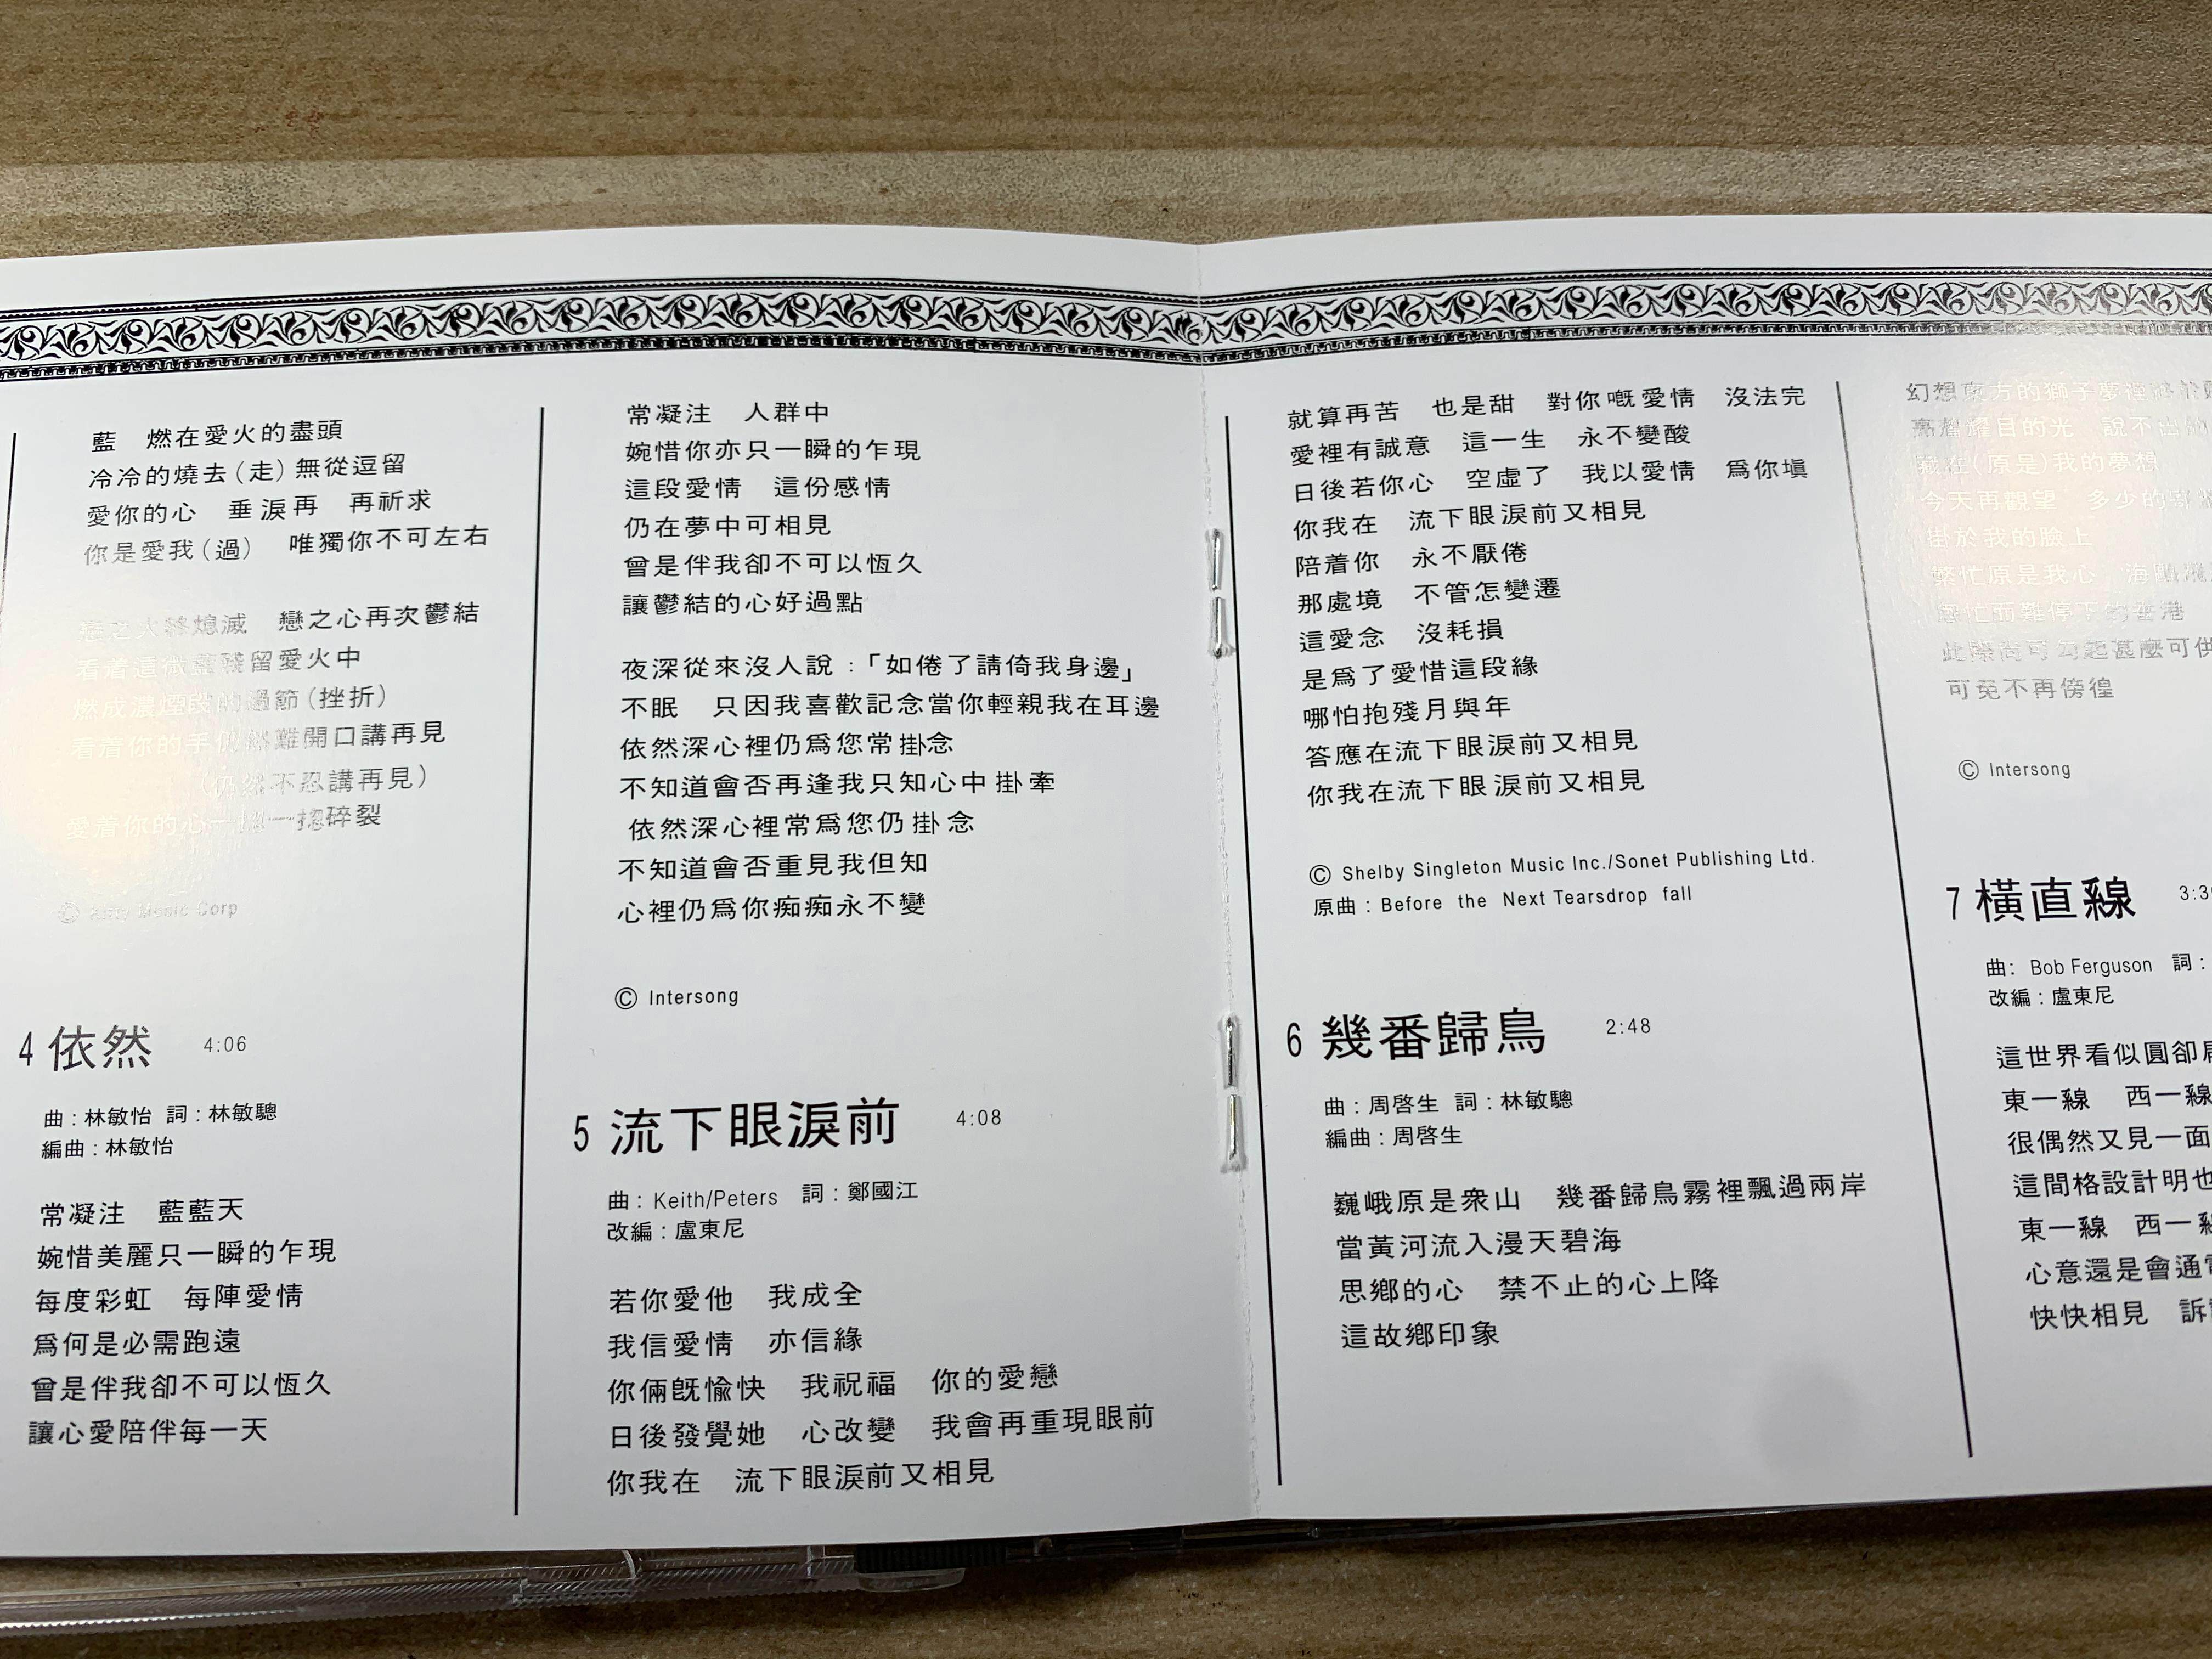 藍　燃在愛火的盡頭
冷冷的燒去(走)無從逗留
愛你的心　垂淚再　再祈求
你是愛我(過)　唯獨你不可左右
戀之心再次鬱結
看着這微藍殘留愛火中
燃成濃煙 過節(挫折)
看着你的手 難開口講再見
(仍然不忍講再見)
愛着你的心 碎裂
Music Corp
4 依然 4:06
曲:林敏怡 詞:林敏驄
編曲:林敏怡
常凝注　藍藍天
婉惜美麗只一瞬的乍現
每度彩虹　每陣愛情
爲何是必需跑遠
曾是伴我卻不可以恆久
讓心愛陪伴每一天
常凝注　人群中
婉惜你亦只一瞬的乍現
這段愛情　這份感情
仍在夢中可相見
曾是伴我卻不可以恆久
讓鬱結的心好過點
夜深從來沒人說:「如倦了請倚我身邊」
不眠　只因我喜歡記念當你輕親我在耳邊
依然深心裡仍爲您常掛念
不知道會否再逢我只知心中掛牽
依然深心裡常爲您仍掛念
不知道會否重見我但知
心裡仍爲你痴痴永不變
© Intersong
5 流下眼淚前 4:08
曲:Keith/Peters 詞:鄭國江
改編:盧東尼
若你愛他　我成全
我信愛情　亦信緣
你倆旣愉快　我祝福　你的愛戀
日後發覺她　心改變　我會再重現眼前
你我在　流下眼淚前又相見
就算再苦　也是甜　對你嘅愛情　沒法完
愛裡有誠意　這一生　永不變酸
日後若你心　空虛了　我以愛情　爲你塡
你我在　流下眼淚前又相見
陪着你　永不厭倦
那處境　不管怎變遷
這愛念　沒耗損
是爲了愛惜這段緣
哪怕抱殘月與年
答應在流下眼淚前又相見
你我在流下眼淚前又相見
© Shelby Singleton Music Inc./Sonet Publishing Ltd.
原曲:Before the Next Tearsdrop fall
6 幾番歸鳥 2:48
曲:周啓生 詞:林敏驄
編曲:周啓生
巍峨原是衆山　幾番歸鳥霧裡飄過兩岸
當黃河流入漫天碧海
思鄉的心　禁不止的心上降
這故鄉印象
幻想東方的獅子夢裡
耀目的光　說不出
(原是)我的夢想
今天再觀望　多少的
掛於我的臉上
繁忙原是我心　海
繁忙面難停下的香港
此際尚可勾起甚麼可供
可免不再傍徨
© Intersong
7 橫直線
曲: Bob Ferguson 詞:
改編:盧東尼
這世界看似圓卻
東一線　西一線
很偶然又見一面
這間格設計明也
東一線　西一線
心意還是會通
快快相見　訴